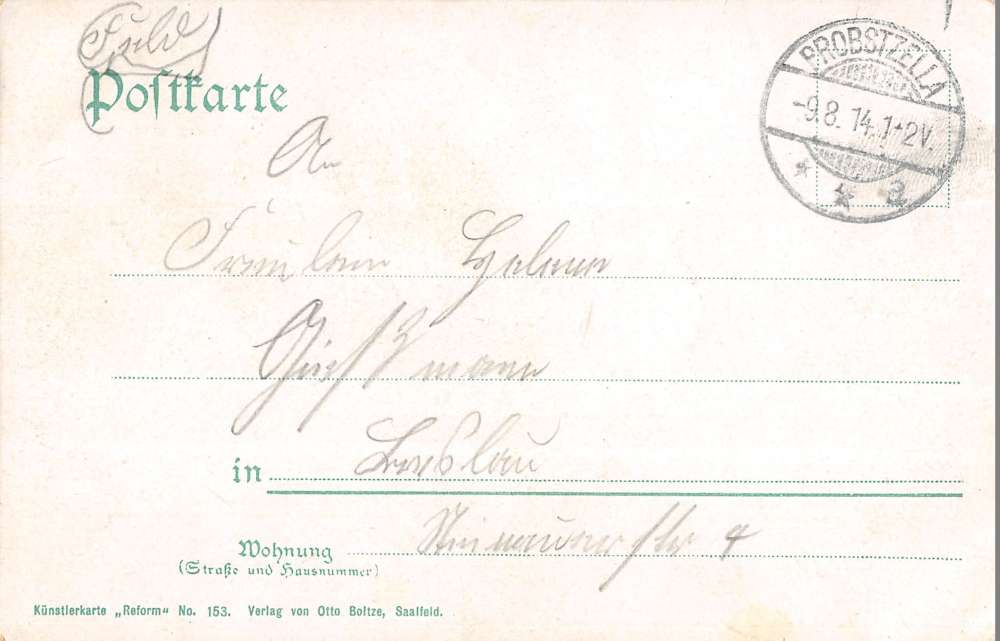 Feld
Postkarte
PROBSTZELLA
-9.8.14.1-2V.
* * a
An
Fräulein Helene
mann
in Breslau
Wohnung
str 4
(Straße und Hausnummer)
Künstlerkarte „Reform“ No. 153. Verlag von Otto Boltze, Saalfeld.